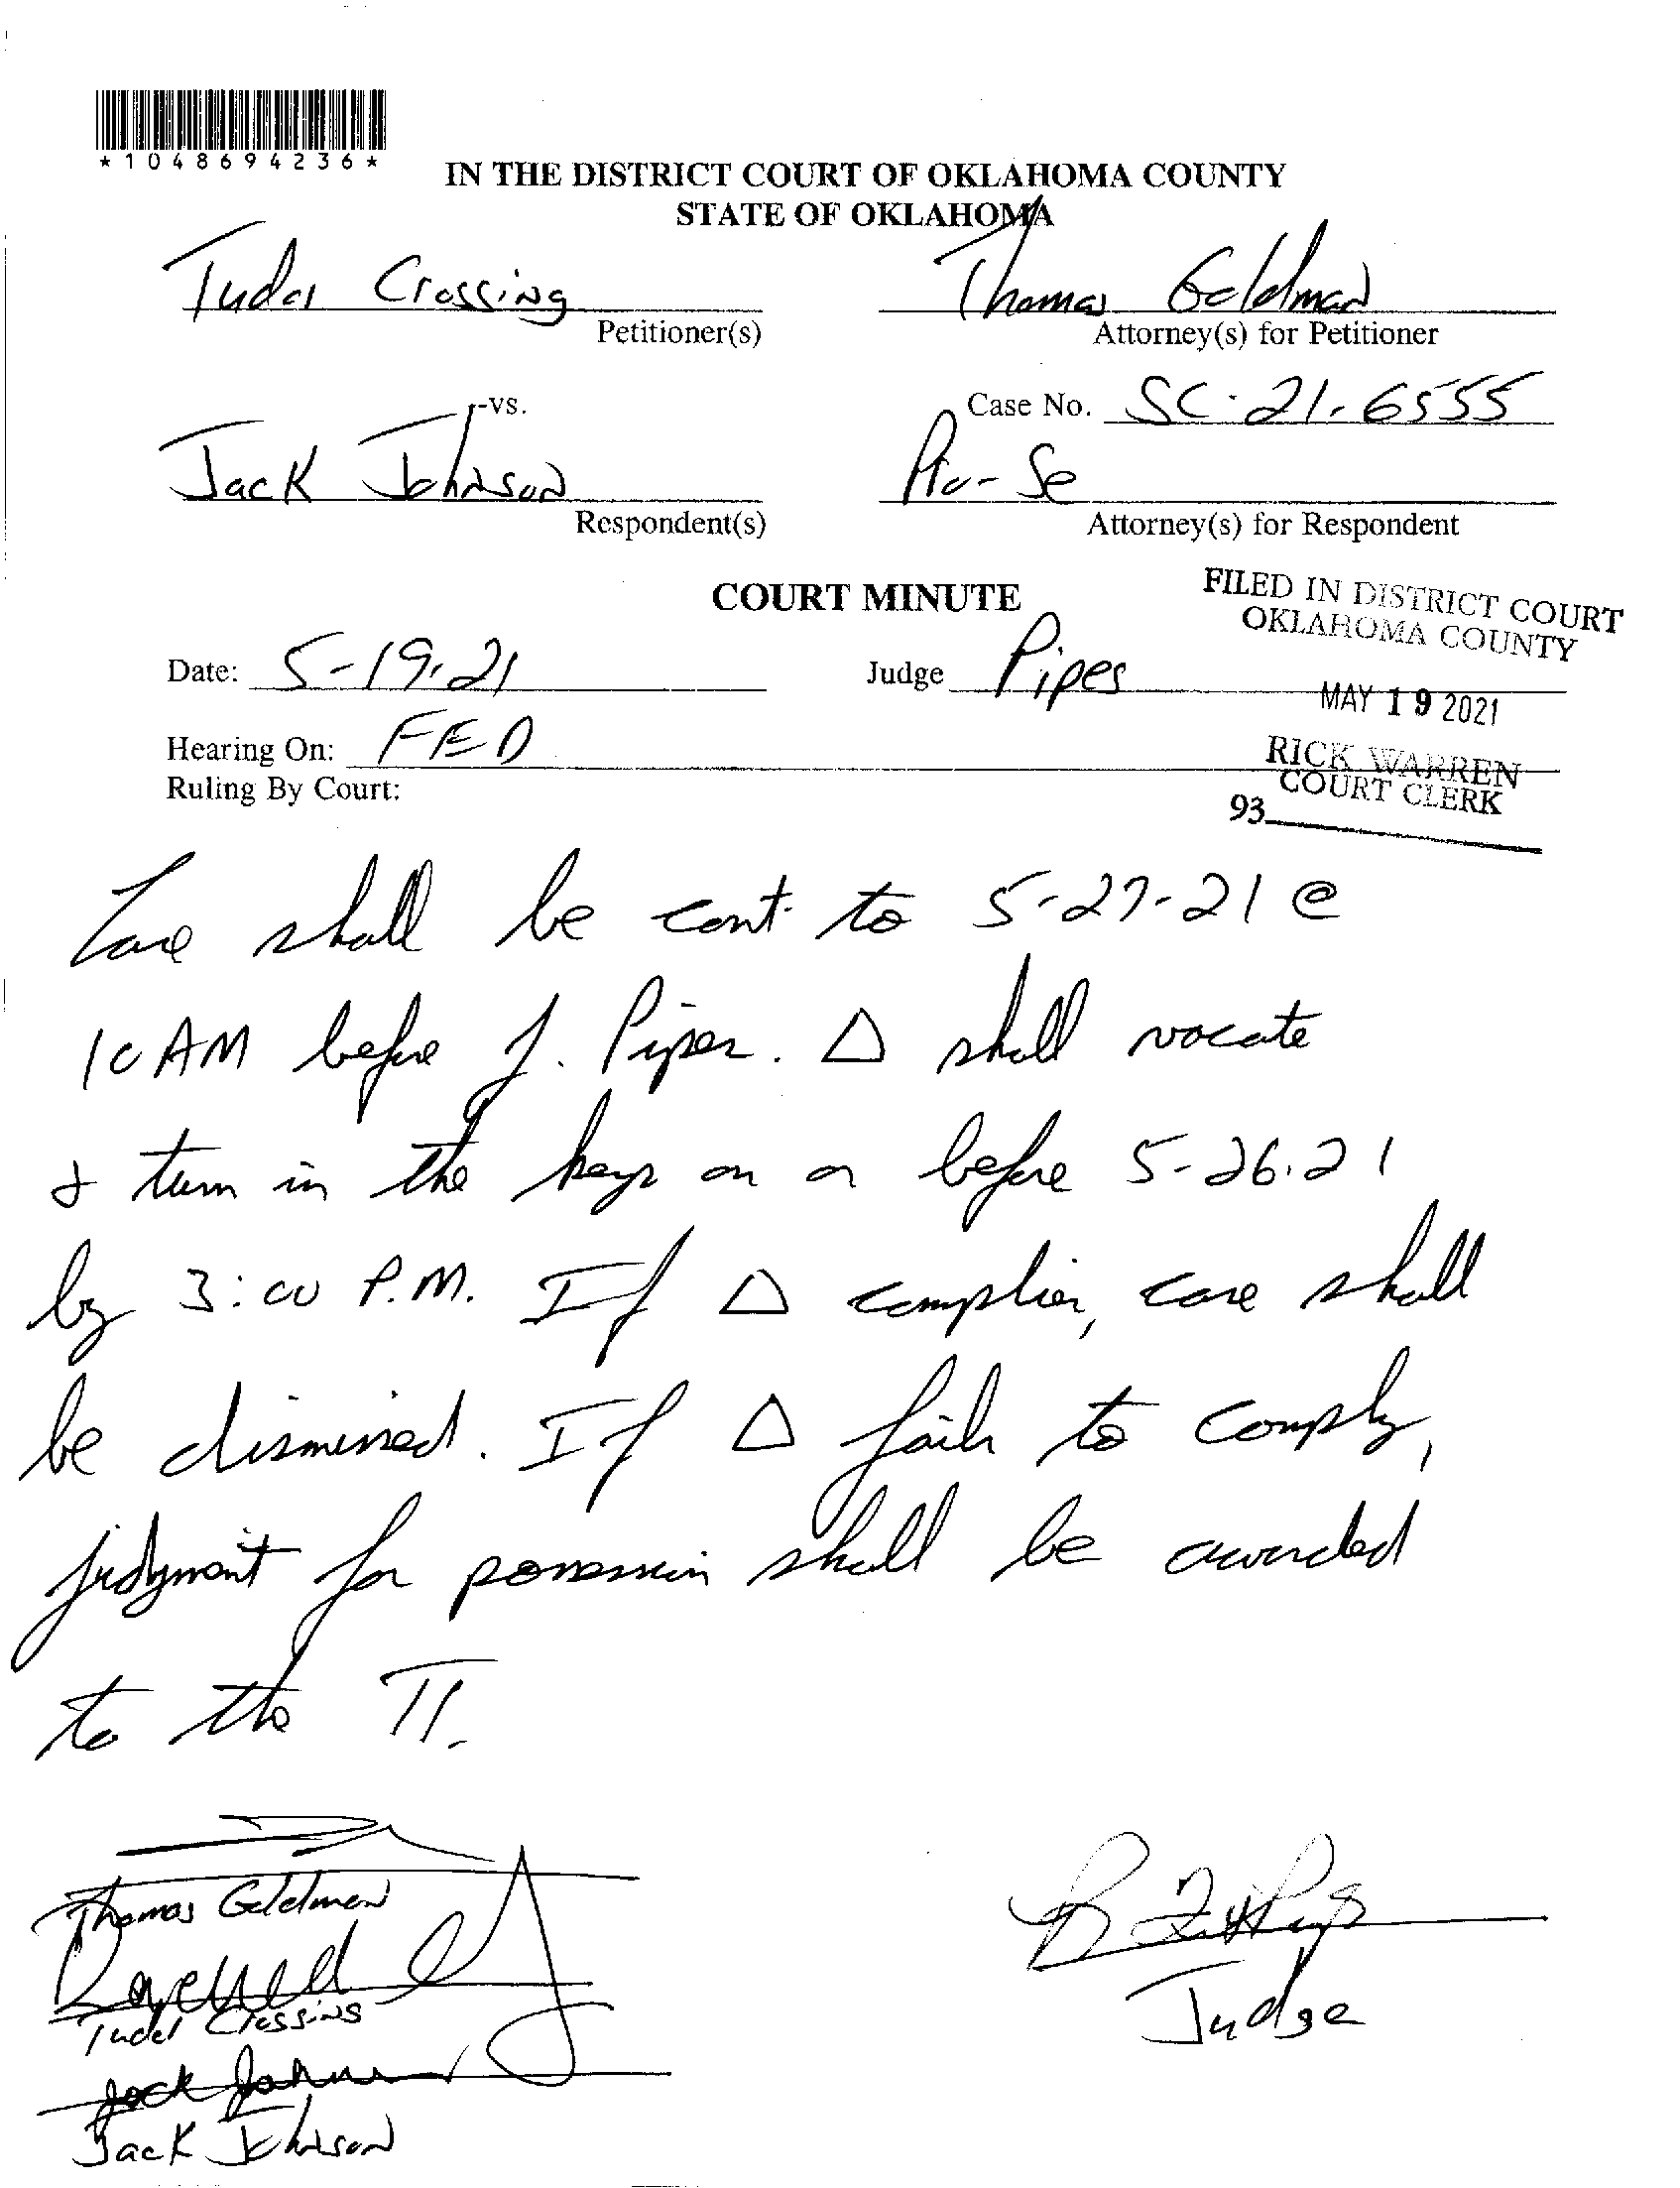 *1048694236*
IN THE DISTRICT COURT OF OKLAHOMA COUNTY
STATE OF OKLAHOMA
Tudor Crossing Thomas Goldman
Petitioner(s) Attorney(s) for Petitioner
-vs. Case No. SC-21-6555
Jack Johnson Pro-Se
Respondent(s) Attorney(s) for Respondent
COURT MINUTE
FILED IN DISTRICT COURT
OKLAHOMA COUNTY
Date: 5-19-21 Judge Pipes
MAY 19 2021
Hearing On: FED
RICK WARREN
COURT CLERK
Ruling By Court:
93
Case shall be cont. to 5-27-21 @
10 AM before J. Pipes. Δ shall vacate
& turn in the keys on or before 5-26-21
by 3:00 P.M. If Δ complies, case shall
be dismissed. If Δ fails to comply,
judgment for possession shall be awarded
to the Π.
Thomas Goldman
Tudor Crossing
Judge
Jack Johnson
Jack Johnson